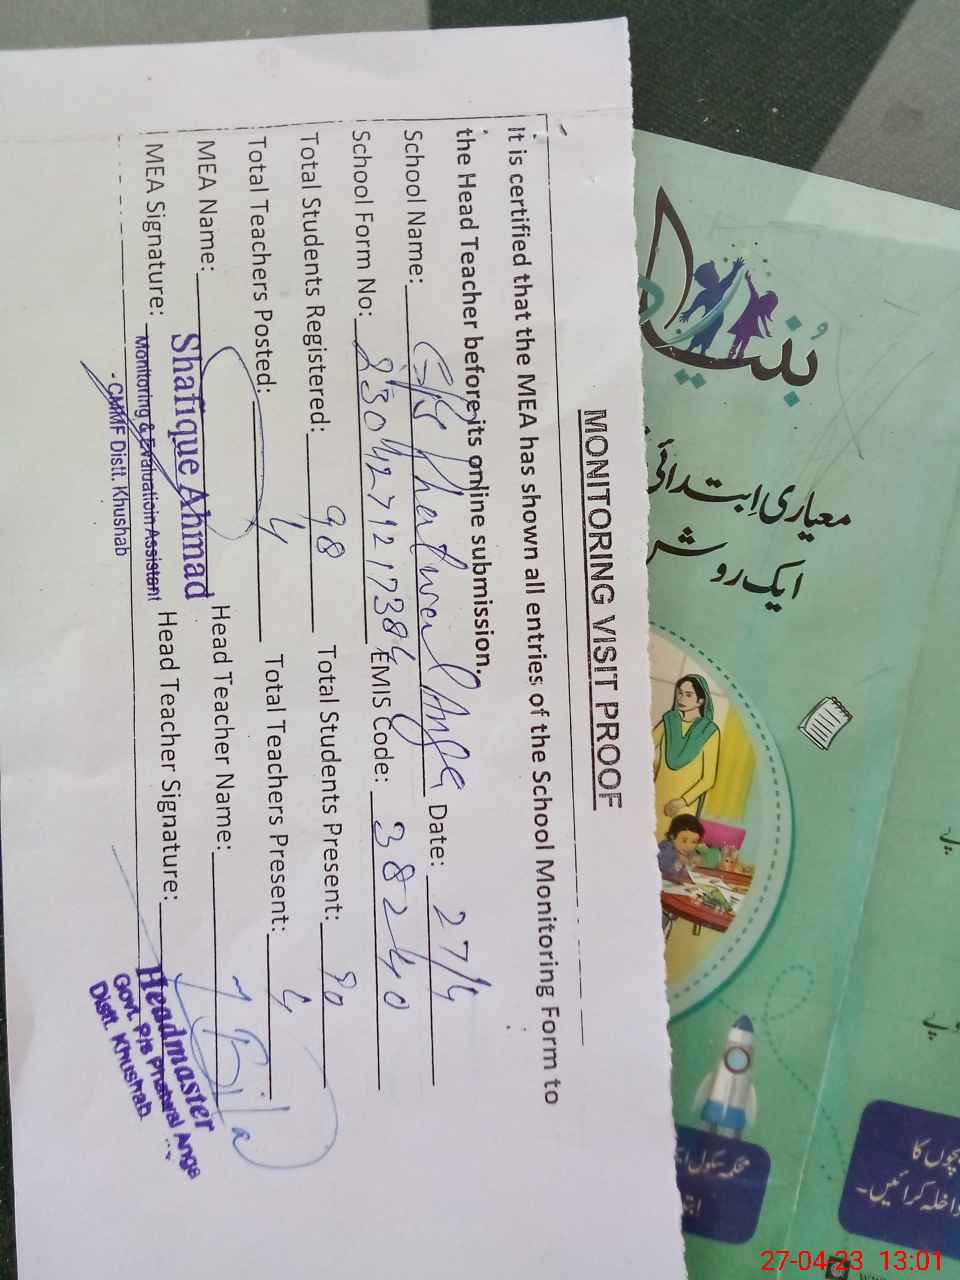 MONITORING VISIT PROOF
It is certified that the MEA has shown all entries of the School Monitoring Form to
the Head Teacher before its online submission.
School Name: G/PS Phatwal Anga Date: 27/4
School Form No: EMIS Code: 38240
Total Students Registered: 98 Total Students Present: 90
Total Teachers Posted: 4 Total Teachers Present: 4
MEA Name: Shafique Ahmad Head Teacher Name:
MEA Signature: Monitoring & Evaluatioin Assistant Head Teacher Signature:
CMMF Distt. Khushab
Headmaster
Govt. P/S Phatwal Anga
Distt. Khushab
معیاری ابتدائی
ایک روش
محکمہ سکول
بچوں کا
داخلہ کرائیں۔
27-04-23 13:01